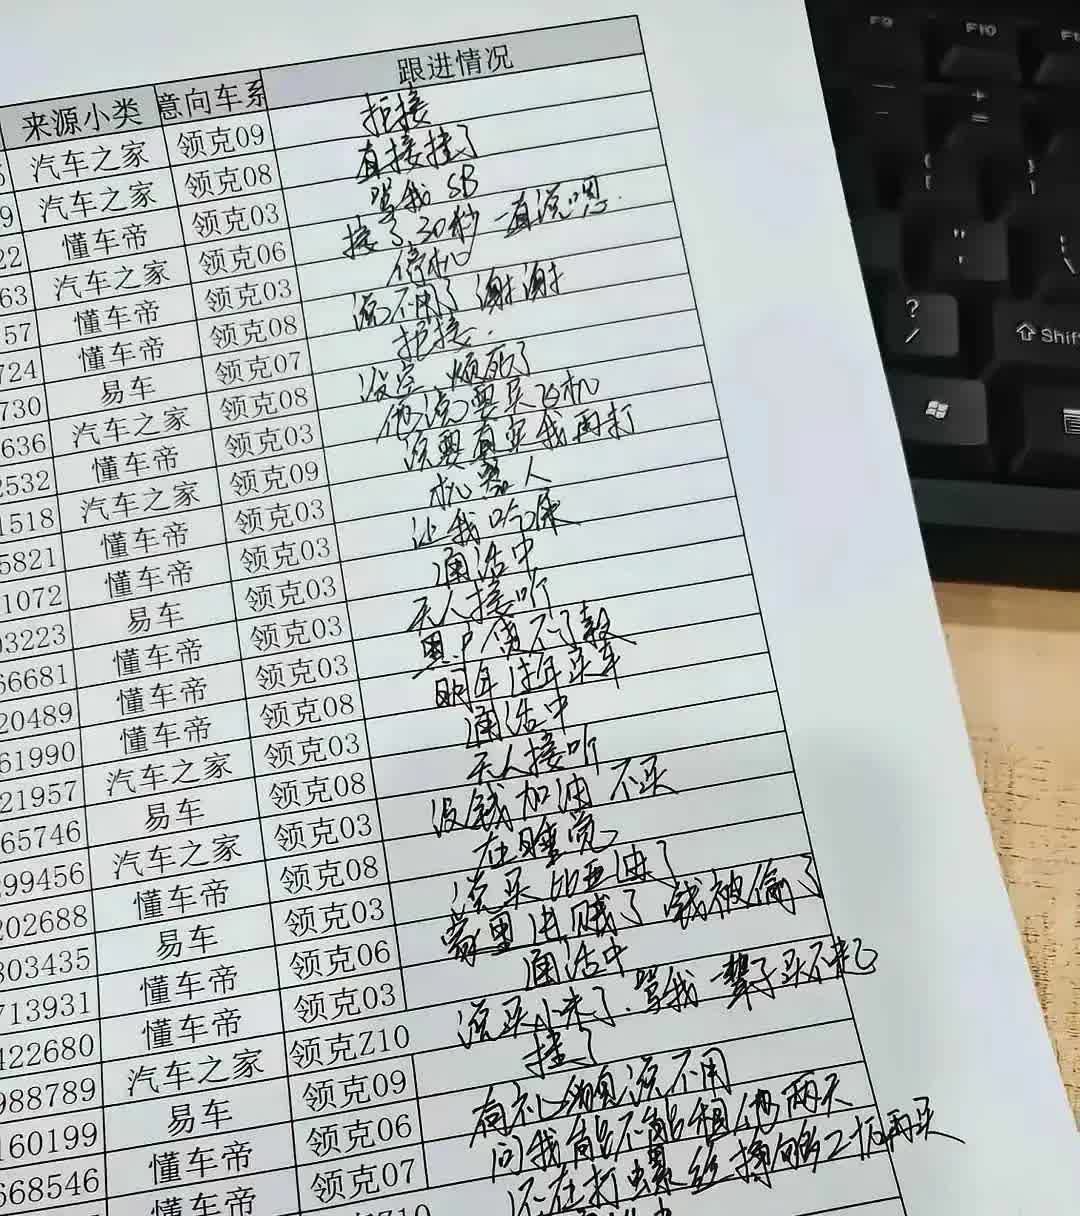 来源小类 意向车系 跟进情况
汽车之家 领克09 拒接
9 汽车之家 领克08 直接挂了
22 懂车帝 领克03 骂我SB
63 汽车之家 领克06 接了30秒 一直说嗯.
157 懂车帝 领克03 停机
724 懂车帝 领克08 说不用了 谢谢
730 易车 领克07 拒接.
636 汽车之家 领克08 没空 烦死了
2532 懂车帝 领克03 他说要买飞机
1518 汽车之家 领克09 我再打
5821 懂车帝 领克03 机器人
1072 懂车帝 领克03 让我吃屎
03223 易车 领克03 通话中
66681 懂车帝 领克03 无人接听
20489 懂车帝 领克03 黑户贷不了款
61990 懂车帝 领克08 明年过年买车
21957 汽车之家 领克03 通话中
65746 易车 领克08 无人接听
299456 汽车之家 领克03 没钱加油 不买
202688 懂车帝 领克08 在睡觉
303435 易车 领克03 说买比亚迪了
713931 懂车帝 领克06 家里进贼了 钱被偷了
422680 懂车帝 领克03 通话中
988789 汽车之家 领克Z10 说买小米了.骂我一辈子买不起
160199 易车 领克09 挂了
668546 懂车帝 领克06 说不用
懂车帝 领克07 问我能不能租他两天
还在打螺丝 再买
F9 F10
? /
Shift